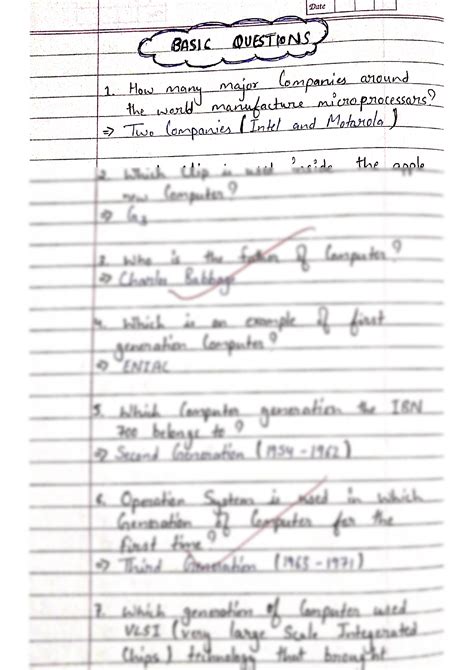 Date
BASIC QUESTIONS
1. How many major Companies around
the world manufacture microprocessars?
⇒ Two Companies (Intel and Motarola)
2. Which Chip is used inside the apple
new Computer?
⇒ G3
3. Who is the father of Computer?
⇒ Charles Babbage
4. Which is an example of first
generation Computer?
⇒ ENIAC
5. Which Computer generation the IBN
700 belongs to?
⇒ Second Generation (1954-1962)
6. Operation System is used in which
Generation of Computer for the
first time?
⇒ Third Generation (1963-1971)
7. Which generation of Computer used
VLSI (very large Scale Integerated
Chips) technology that brought